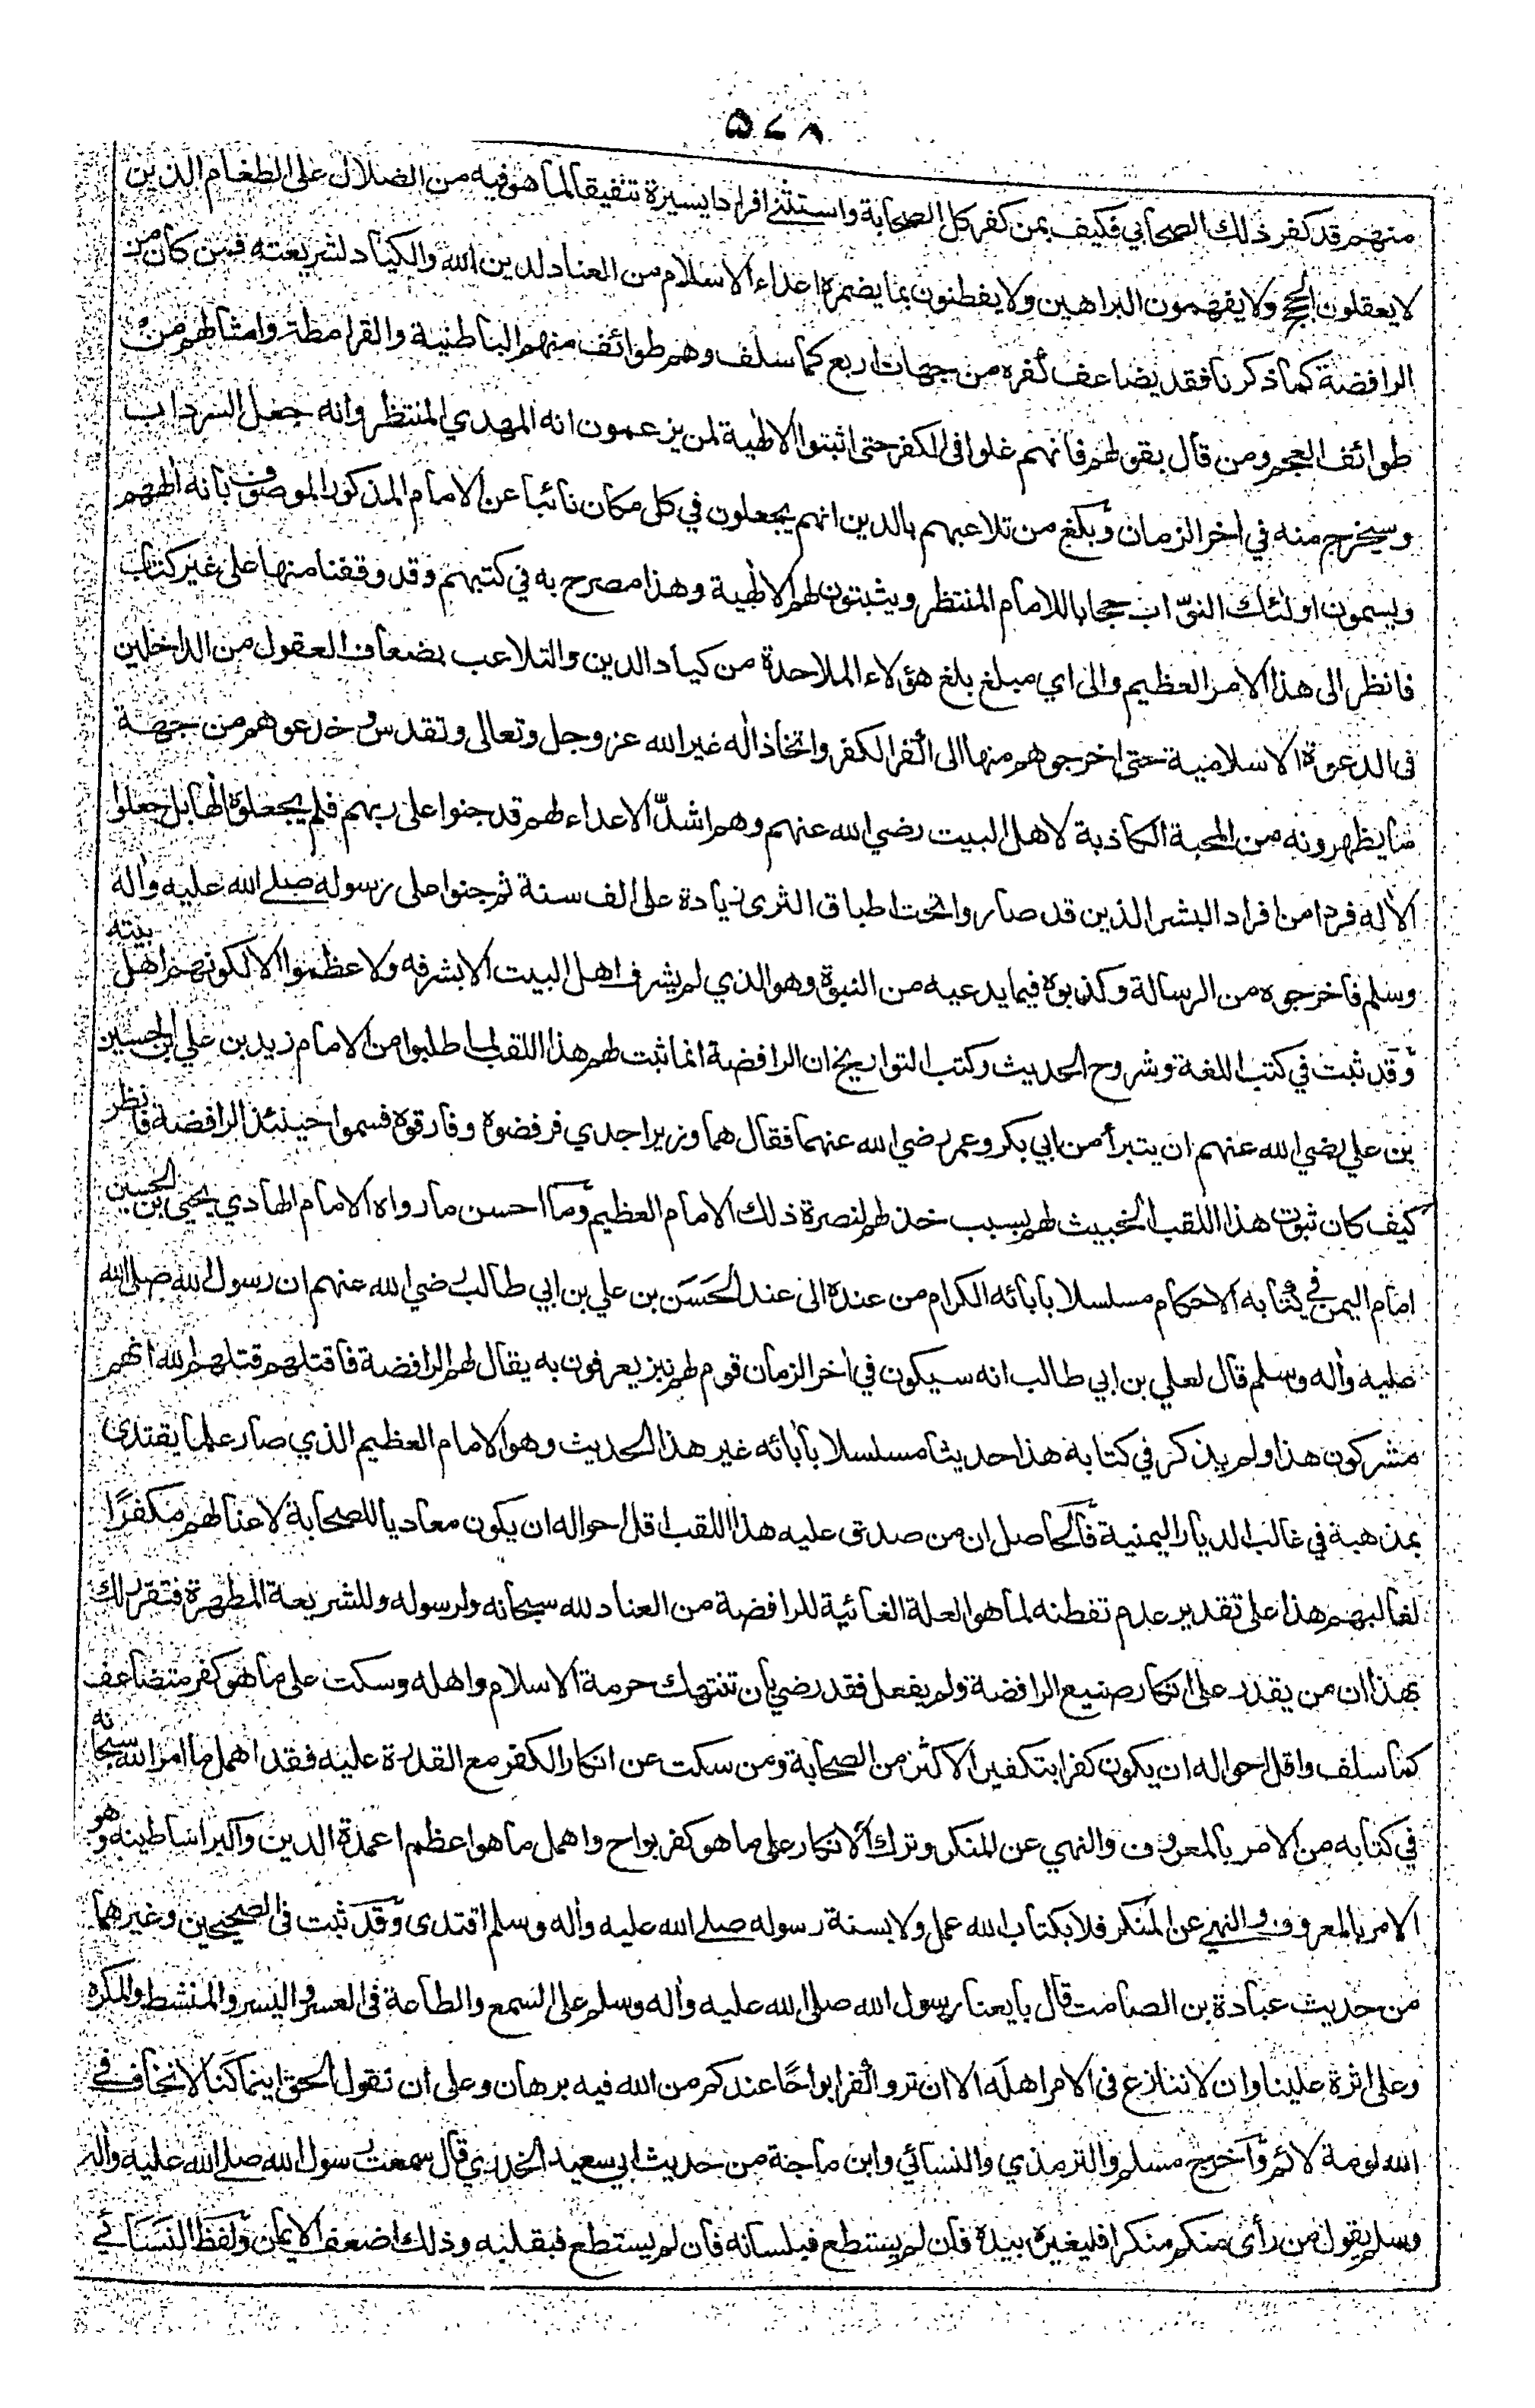 ٥٧٨
منهم قد كفر ذلك الصحابي فكيف بمن كفر كل الصحابة واستثنى افرادا يسيرة تنفيقا لما هو فيه من الضلال على الطغام الذين
لا يعقلون الحجج ولا يفهمون البراهين ولا يفطنون بما يضمره اعداء الاسلام من العناد لدين الله والكياد لشريعته فمن كان من
الرافضة كما ذكرنا فقد يضاعف كفره من جهات اربع كما سلف وهم طوائف منهم الباطنية والقرامطة وامثالهم من
طوائف العجم ومن قال بقولهم فانهم غلوا فى الكفر حتى اثبتوا الالٰهية لمن يزعمون انه المهدي المنتظر وانه جعل السرداب
وسيخرج منه في اخر الزمان وبلغ من تلاعبهم بالدين انهم يجعلون في كل مكان نائبا عن الامام المذكور الموصوف بانه الٰههم
ويسمون اولئك النوّاب حجابا للامام المنتظر ويثبتون لهم الالٰهية وهذا مصرح به في كتبهم وقد وقفنا منها على غير كتاب
فانظر الى هذا الامر العظيم والى اي مبلغ بلغ هؤلاء الملاحدة من كياد الدين والتلاعب بضعاف العقول من الداخلين
فى الدعوة الاسلامية حتى اخرجوهم منها الى اكفر الكفر واتخاذ اله غير الله عز وجل وتعالى وتقدس وخدعوهم من جهة
ما يظهرونه من المحبة الكاذبة لاهل البيت رضي الله عنهم وهم اشدّ الاعداء لهم قد جنوا على ربهم فلم يجعلوه الٰها بل جعلوا
الاله فردا من افراد البشر الذين قد صاروا تحت اطباق الثرى زيادة على الف سنة ثم جنوا على رسوله صلى الله عليه واٰله
وسلم فاخرجوه من الرسالة وكذبوه فيما يدعيه من النبوة وهو الذي لم يشرف اهل البيت الا بشرفه ولا عظموا الا لكونهم اهل بيته
وقد ثبت في كتب اللغة وشروح الحديث وكتب التواريخ ان الرافضة انما ثبت لهم هذا اللقب لما طلبوا من الامام زيد بن علي ابن الحسين
بن علي رضي الله عنهم ان يتبرأ من ابي بكر وعمر رضي الله عنهما فقال هما وزيرا جدي فرفضوه وفارقوه فسموا حينئذ الرافضة فانظر
كيف كان ثبوت هذا اللقب الخبيث لهم بسبب خذلهم لنصرة ذلك الامام العظيم وما احسن ما رواه الامام الهادي يحيى بن الحسين
امام اليمن في كتابه الاحكام مسلسلا باٰبائه الكرام من عنده الى عند الحَسَن بن علي بن ابي طالب رضي الله عنهم ان رسول الله صلى الله
عليه واٰله وسلم قال لعلي بن ابي طالب انه سيكون في اٰخر الزمان قوم لهم نبز يعرفون به يقال لهم الرافضة فاقتلهم قتلهم الله انهم
مشركون هذا ولم يذكر في كتابه هذا حديثا مسلسلا باٰبائه غير هذا الحديث وهو الامام العظيم الذي صار علما يقتدى
بمذهبه في غالب الديار اليمنية فالحاصل ان من صدق عليه هذا اللقب اقل احواله ان يكون معاديا للصحابة لاعنا لهم مكفرًا
لغالبهم هذا على تقدير عدم تفطنه لما هو العلة الغائية للرافضة من العناد لله سبحانه ولرسوله وللشريعة المطهرة فتقرر لك
بهذا ان من يقدر على انكار صنيع الرافضة ولم يفعل فقد رضي بان تنتهك حرمة الاسلام واهله وسكت على ما هو كفر متضاعف
كما سلف واقل احواله ان يكون كفرا بتكفير الاكثر من الصحابة ومن سكت عن انكار الكفر مع القدرة عليه فقد اهمل ما امر الله سبحانه
في كتابه من الامر بالمعروف والنهي عن المنكر وترك الانكار على ما هو كفر بواح واهمل ما هو اعظم اعمدة الدين واكبر اساطينه وهو
الامر بالمعروف والنهي عن المنكر فلا بكتاب الله عمل ولا بسنة رسوله صلى الله عليه واٰله وسلم اقتدى وقد ثبت فى الصحيحين وغيرهما
من حديث عبادة بن الصامت قال بايعنا رسول الله صلى الله عليه واٰله وسلم على السمع والطاعة فى العسر واليسر والمنشط والمكره
وعلى اثرة علينا وان لا ننازع فى الامر اهله الا ان تروا كفرا بواحًا عندكم من الله فيه برهان وعلى ان نقول الحق اينما كنا لا نخاف في
الله لومة لائم واخرج مسلم والترمذي والنسائي وابن ماجة من حديث ابي سعيد الخدري قال سمعت رسول الله صلى الله عليه واٰله
وسلم يقول من رأى منكم منكرا فليغيره بيده فان لم يستطع فبلسانه فان لم يستطع فبقلبه وذلك اضعف الايمان ولفظ النسائي